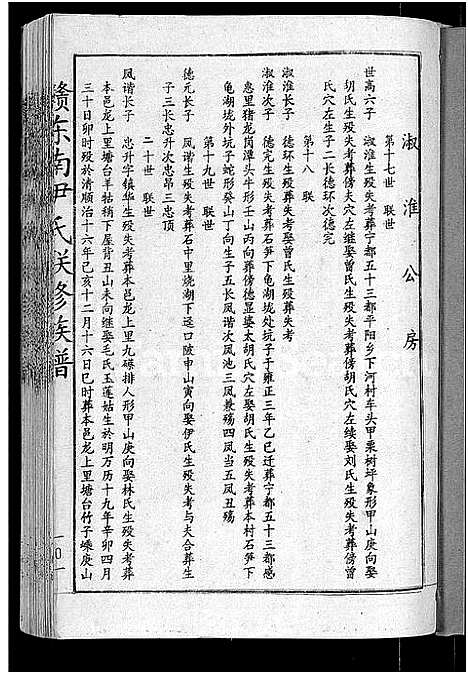 淑淮公房
第十七世 联世
世高六子 淑淮生殁失考葬宁都五十三都平阳乡下河村车头甲栗树坪象形甲山庚向娶
胡氏生殁失考葬傍夫穴左继娶曾氏生殁失考葬傍胡氏穴左续娶刘氏生殁失考葬傍曾
氏穴左生子二长德环次德完
第十八 联
淑淮长子 德环生殁葬失考娶曾氏生殁葬失考
淑淮次子 德完生殁失考葬石笋下龟湖垅处坑子于雍正三年乙巳迁葬宁都五十三都感
惠里猪龙岗潭头牛形壬山丙向葬傍德显婆太胡氏穴左娶胡氏生殁失考葬本村石笋下
龟湖垅外坑子蛇形癸山丁向生子五长凤谐次凤池三凤兼殇四凤当五凤丑殇
第十九世 联世
德元长子 凤谐生殁失考葬石中里烧湖下迳口陂申山寅向娶伊氏生殁失考与夫合葬生
子三长忠升次忠昂三忠顶
二十世 联世
凤谐长子 忠升字镇华生殁失考葬本邑龙上里九磜排人形甲山庚向娶林氏生殁失考葬
本邑龙上里塘台羊牯稍下屋背丑山未向继娶毛氏玉莲姑生於明万历十九年辛卯四月
三十日卯时殁於清顺治十六年己亥十二月十六日巳时葬本邑龙上里塘台竹子嵊庚山
赣东南尹氏联修族谱
一10一